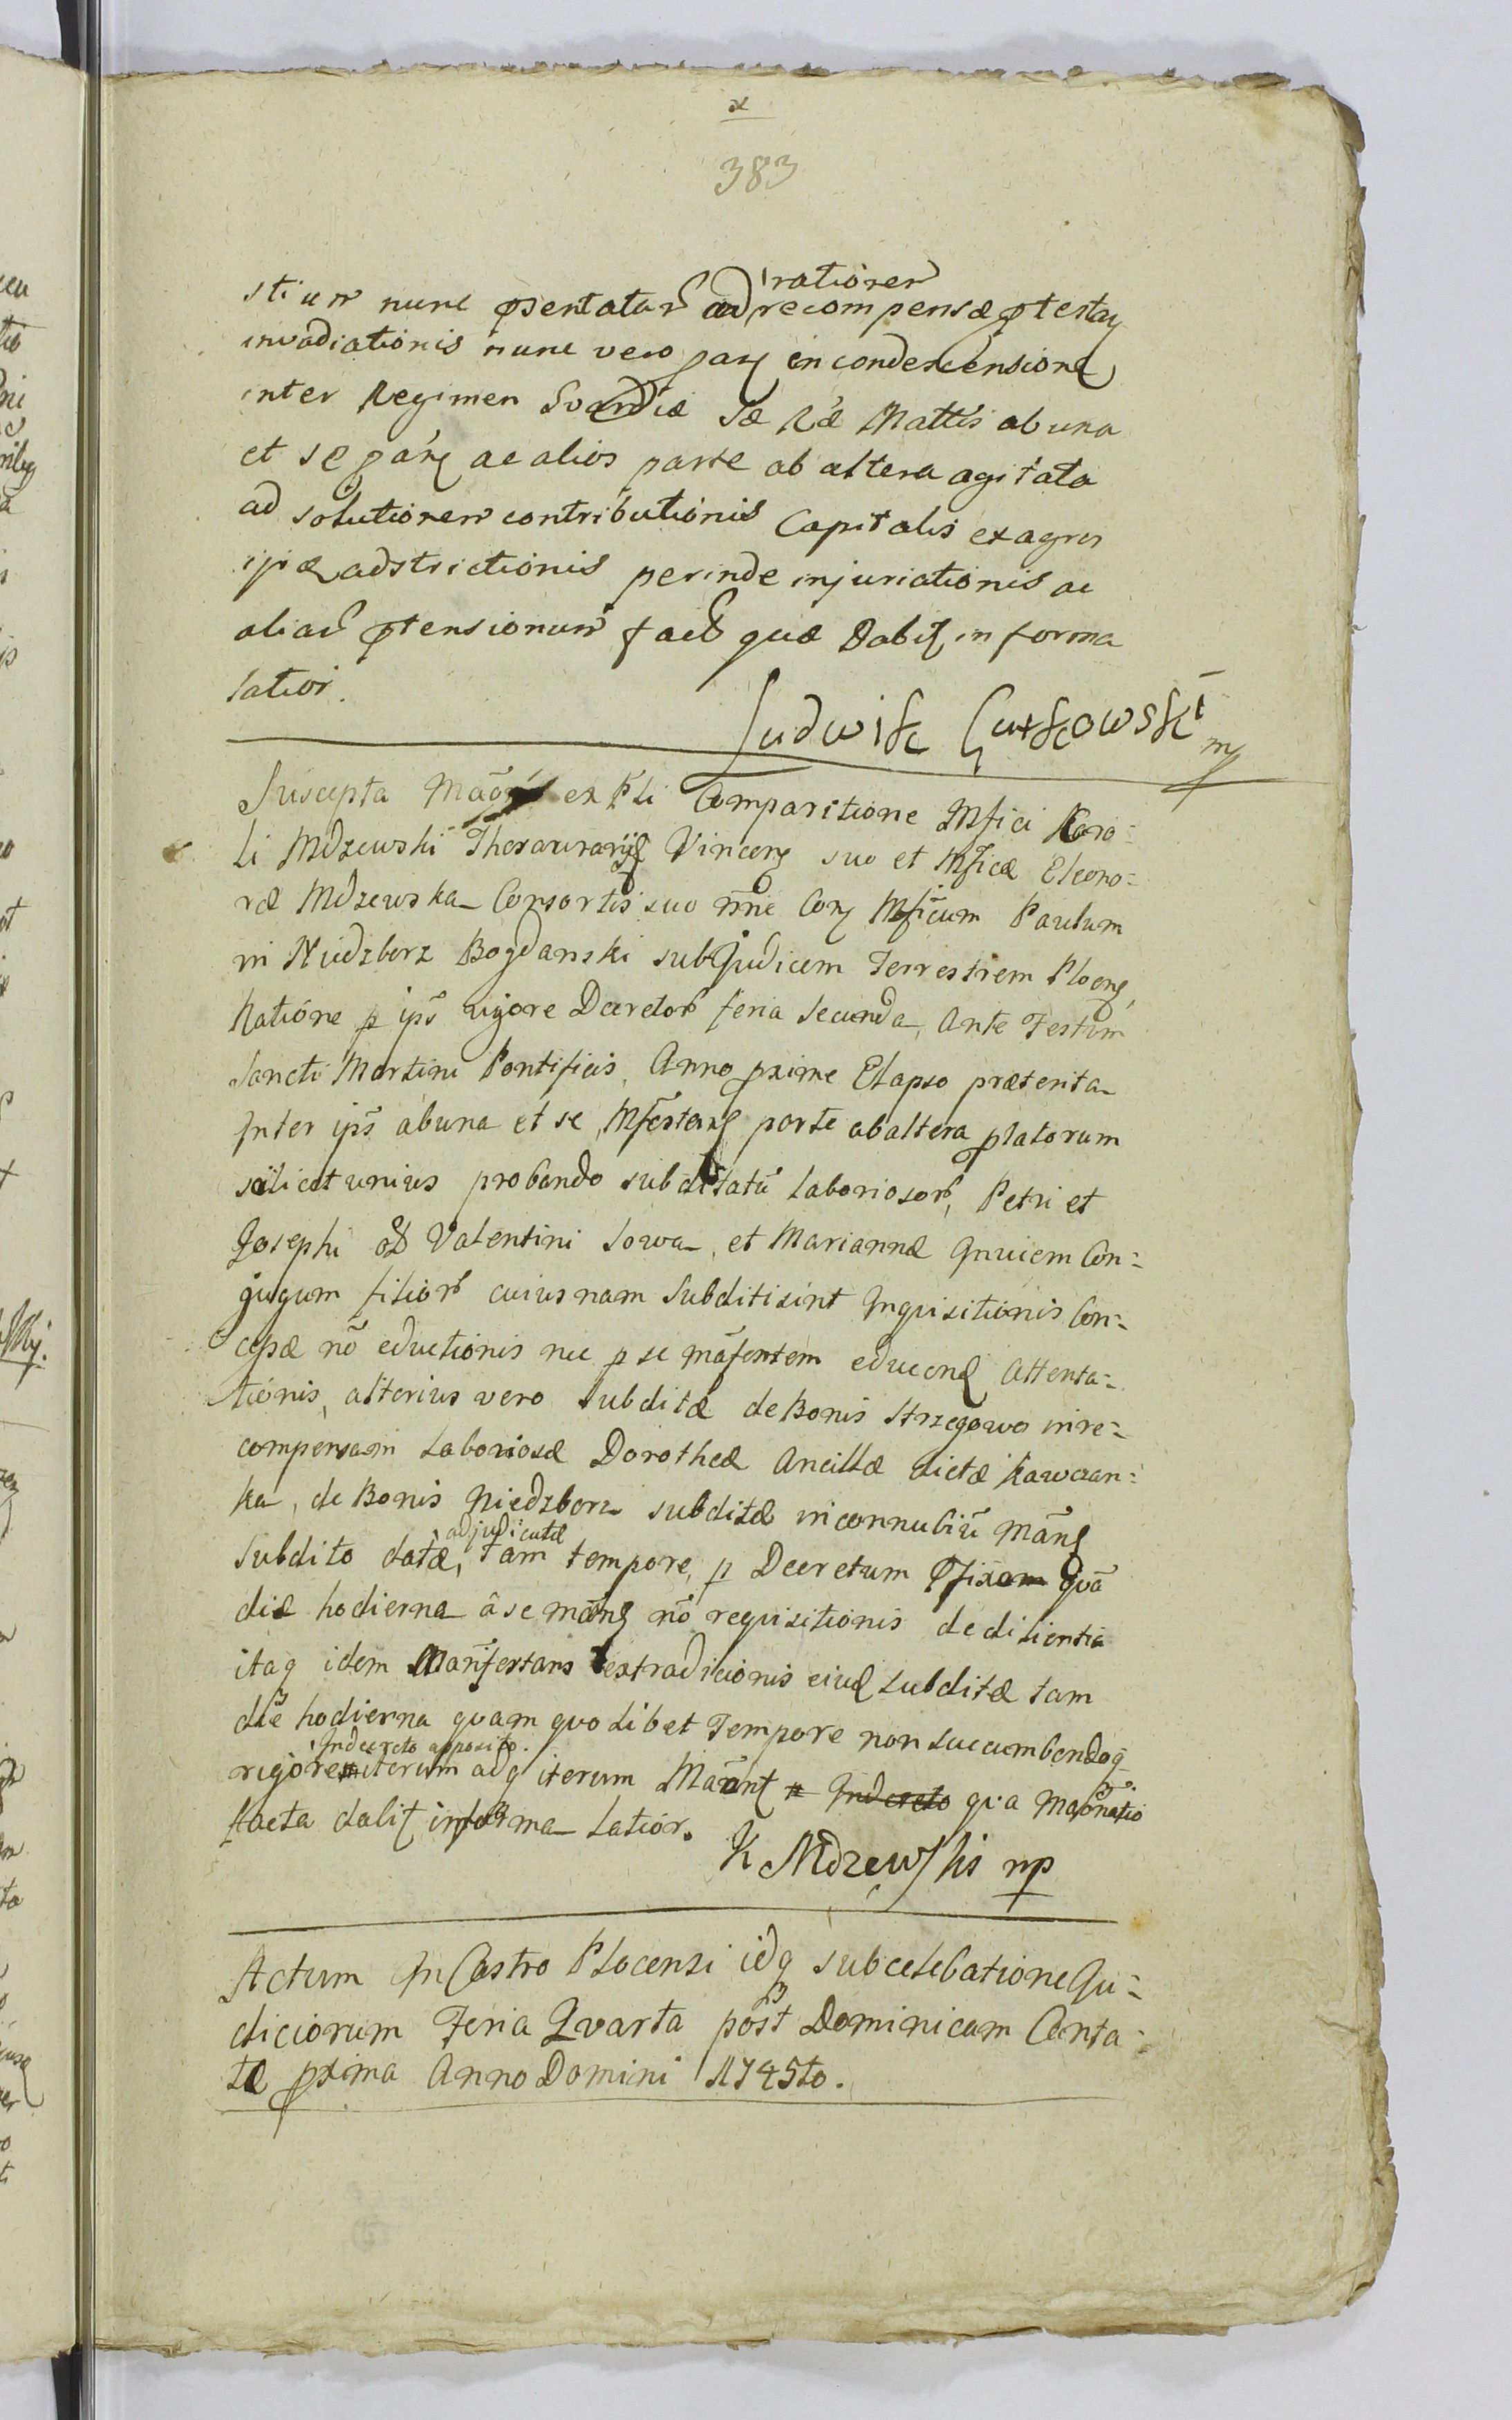 383
rationem
stium nunc pſentatar ad recompensæ ptestaç
invadiationis nunc vero parç in condescensione
inter Regimen Gvardiæ Sæ Ræ Mattis ab una
et se parç ac alios parte ab altera agitata
ad solutionem contributionis Capitalis ex agris
adstrictionis perinde injuriationis ac
aliar ptensionum fact quæ Dabiſ in forma
latiori.
Ludwik Gutkowski mp
Suscepta ex Pli Comparitione Mfici Karo=
li Mdzewski Thesaurarij Vincenç suo et Mficæ Eleono=
ræ Mdzewska Consortis suo nne Conç Mficum Paulum
in Niedzborz Bogdanski subJudicem Terrestrem Plocenç,
Ratione p ips vigore Decretor feria Secunda, Ante Festum
Sancti Martini Pontificis, Anno pxime Elapso præterita
Inter ips ab una et se Mfestanç parte ab altera platorum
scilicet unius probando subditatũ Laboriosor, Petri et
Josephi Valentini Sowa, et Mariannæ Invicem Con=
jugum filior cuiusnam Subditi sint Inquisitionis Con=
cepæ nõ eductionis nec p se mãfestem educenđ Attenta=
tionis, alterius vero Subditæ de Bonis Strzegowo in re=
compensam Laboriosæ Dorotheæ Ancillæ dictæ Kawczan=
ka, de Bonis Niedzborz subditæ in connubiũ Mãnç
adjudicatæ
Subdito datæ, tam tempore, p Decretum pfixo quã
die hodierna â se mãnç nõ requisitionis de diligentia
itaq idem Manifestans extradicionis eiusđ subditæ tam
die hodierna quam quolibet Tempore non succumbendoq
In decreto apposito.
rigore iterum adq iterum Mãnt In decreto qa Mafnatio
facta daliſ in forma Latiori.
K Mdzewski mp
Actum In Castro Plocensi idq sub celebatione Ju=
diciorum Feria Quarta post Dominicam Canta=
tæ pxima Anno Domini 1745to.